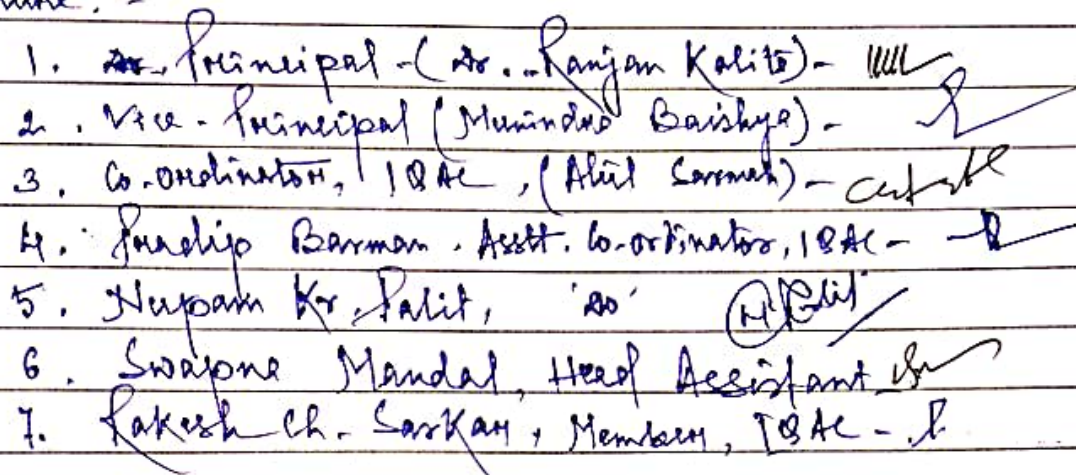 1. Principal - (Dr. Ranjan Kalita) -
2. Vice-Principal (Munindra Baishya) -
3. Co-ordinator, IQAC, (Atul Sarmah) -
4. Pradip Barman. Asstt. Co-ordinator, IQAC -
5. Nupam Kr. Palit, 'do'
6. Swapna Mandal, Head Assistant
7. Rakesh Ch. Sarkar, Member, IQAC -